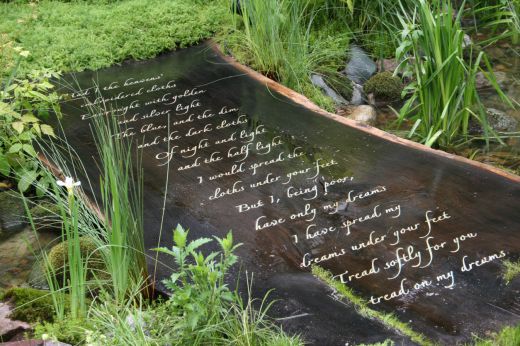 Had I the heavens'
embroidered cloths
Enwrought with golden
and silver light
The blue, and the dim
and the dark cloths
Of night and light
and the half light
I would spread the
cloths under your feet
But I, being poor,
have only my dreams
I have spread my
dreams under your feet
Tread softly for you
tread on my dreams